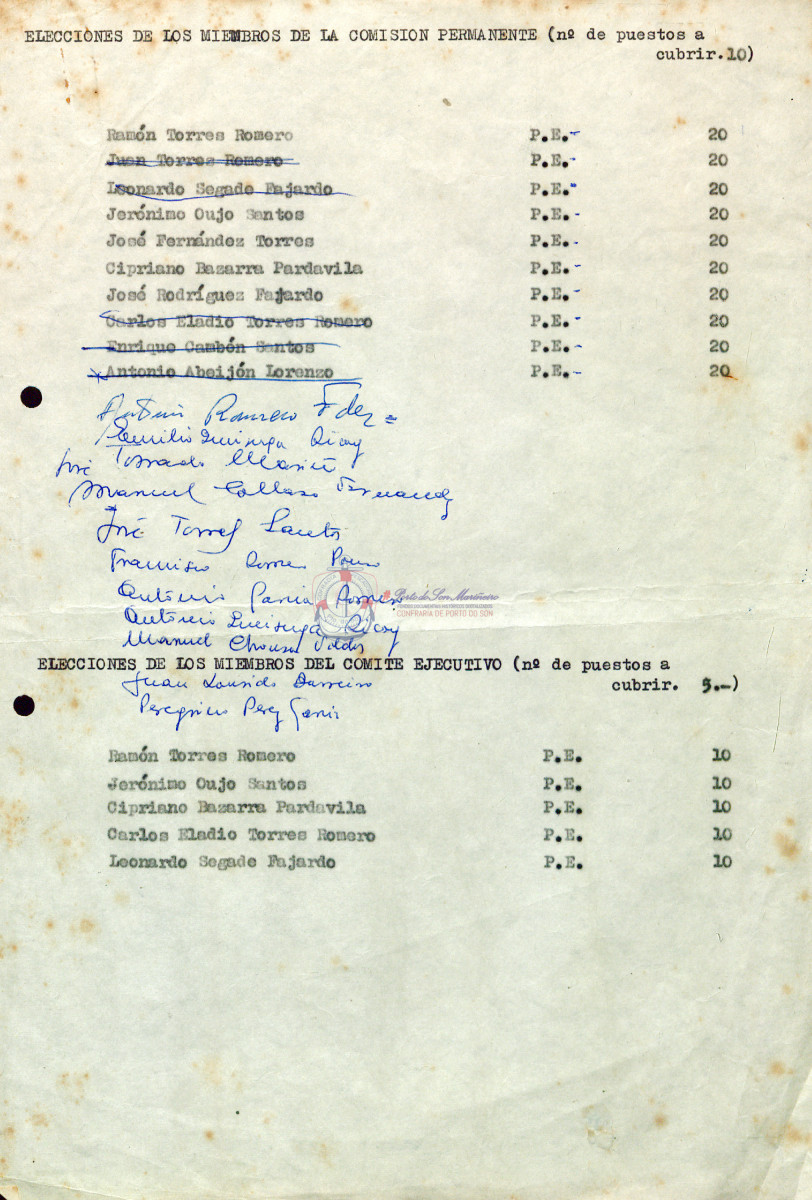 ELECCIONES DE LOS MIEMBROS DE LA COMISION PERMANENTE (nº de puestos a
cubrir.10)
Ramón Torres Romero P.E.- 20
Juan Torres Romero P.E.- 20
Leonardo Segade Fajardo P.E.- 20
Jerónimo Oujo Santos P.E.- 20
José Fernández Torres P.E.- 20
Cipriano Bazarra Pardavila P.E.- 20
José Rodríguez Fajardo P.E.- 20
Carlos Eladio Torres Romero P.E.- 20
Enrique Cambón Santos P.E.- 20
Antonio Abeijón Lorenzo P.E.- 20
Romero Fdez
Emilio
José
Manuel Collazo
José Torres Santos
Francisco
Antonio
Porto do Son Mariñeiro
CONFRARIA DE PORTO DO SON
Antonio
Manuel
ELECCIONES DE LOS MIEMBROS DEL COMITE EJECUTIVO (nº de puestos a
cubrir. 5.-)
Juan
Perez
Ramón Torres Romero P.E. 10
Jerónimo Oujo Santos P.E. 10
Cipriano Bazarra Pardavila P.E. 10
Carlos Eladio Torres Romero P.E. 10
Leonardo Segade Fajardo P.E. 10